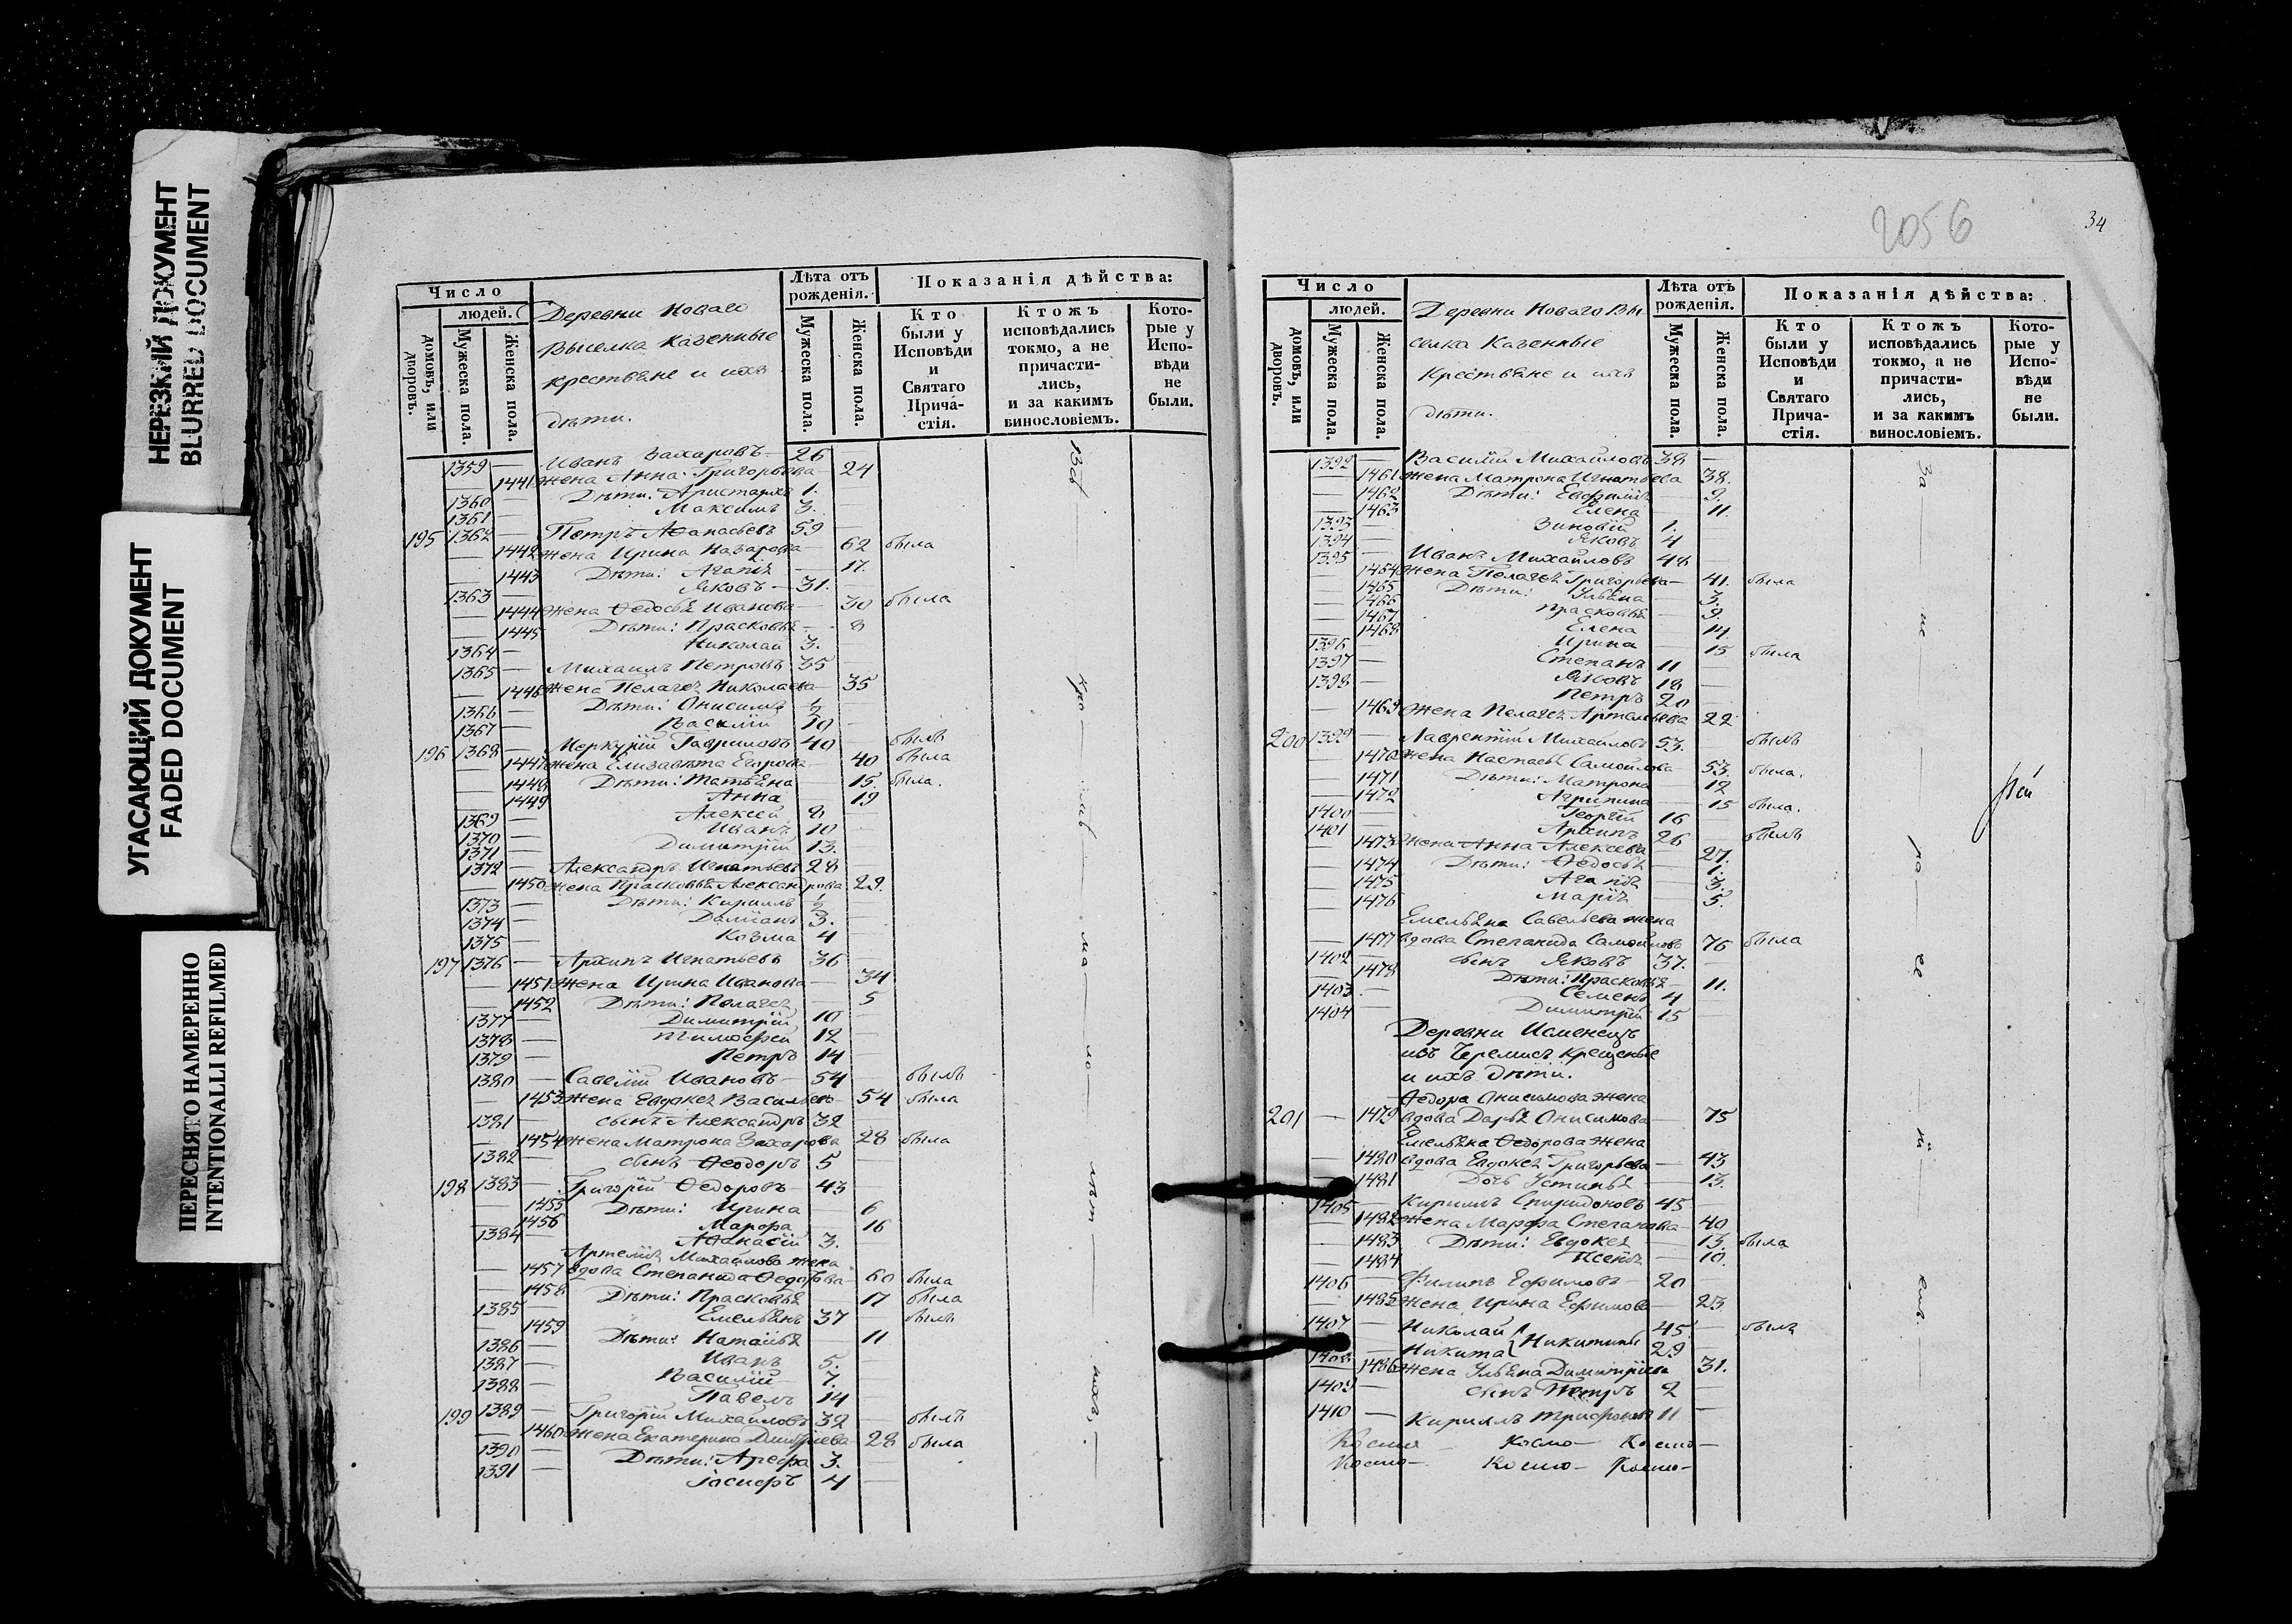 НЕРЕЗКИЙ ДОКУМЕНТ
BLURRED DOCUMENT
УГАСАЮЩИЙ ДОКУМЕНТ
FADED DOCUMENT
ПЕРЕСНЯТО НАМЕРЕННО
INTENTIONALLI REFILMED
Число
людей.
домовъ, или дворовъ.
Мужеска пола.
Женска пола.
Деревни Новаго
Выселка казенные
крестьяне и ихъ
дѣти.
Лѣта отъ рожденія.
Мужеска пола.
Женска пола.
Показанія дѣйства:
Кто были у Исповѣди и Святаго Прича-стія.
Ктожъ исповѣдались токмо, а не причасти-лись, и за какимъ винословіемъ.
Кото-рые у Испо-вѣди не были.
1359 — Иванъ Захаровъ — 26
1441 жена Анна Григорьева — 24
1360 — Дѣти: Аристархъ 1.
1361 — Максимъ 3.
195 1362 — Петръ Аѳанасьевъ 59 —
1442 жена Ирина Назарова — 62 была
1443 Дѣти: — 17.
1363 — Яковъ — 31.
1444 жена Ѳедосья Иванова — 30 была
1445 Дѣти: Прасковья — 8
1364 — Николай 3.
1365 — Михаилъ Петровъ 35
1446 жена Пелагея Николаева — 35
1366 — Дѣти: Онисимъ ½
1367 — Василій 10 —
196 1368 — Меркурій Гавриловъ 40 — былъ
1447 жена Елизавета Егорова — 40 была
1448 Дѣти: Татьяна — 15. была.
1449 Анна — 19
1369 — Алексей 8
1370 — Иванъ 10 —
1371 — Димитрій 13.
1372 — Александръ Игнатьевъ 28
1450 жена Прасковья Александрова 29.
1373 — Дѣти: Кириллъ ½
1374 — Даміанъ 3.
1375 — Козма 4
197 1376 — Архипъ Игнатьевъ 36 —
1451 жена Ирина Иванова — 34
1452 Дѣти: Пелагея — 5
1377 — Димитрій 10
1378 — Тимофей 12
1379 — Петръ 14
1380 — Савелій Ивановъ — 54 — былъ
1453 жена Евдокея Васильева — 54 была
1381 — сынъ Александръ 32
1454 жена Матрона Захарова 28 была
1382 — сынъ Ѳеодоръ 5
198 1383 — Григорій Ѳедоровъ — 43
1455 Дѣти: Ирина — 6
1456 Марфа — 16
1384 — Аѳанасій 3.
Артемія Михайлова жена
1457 вдова Степанида Ѳедорова — 60 была
1458 Дѣти: Прасковья — 17 была
1385 — Емельянъ 37 — былъ
1459 Дѣти: Наталья — 11
1386 — Иванъ 5.
1387 — Василій 7.
1388 — Павелъ 14
199 1389 — Григорій Михайловъ 32 — былъ
1460 жена Екатерина Димитріева — 28 была
1390 — Дѣти: Арефа 3.
1391 — Іосифъ 4
2056
34
Число
людей.
домовъ, или дворовъ.
Мужеска пола.
Женска пола.
Деревни Новаго Вы
селка Казенные
Крестьяне и ихъ
дѣти.
Лѣта отъ рожденія.
Мужеска пола.
Женска пола.
Показанія дѣйства:
Кто были у Исповѣди и Святаго Прича-стія.
Ктожъ исповѣдались токмо, а не причасти-лись, и за какимъ винословіемъ.
Кото-рые у Испо-вѣди не были.
1392 — Василій Михайловъ 38 —
1461 жена Матрона Игнатьева 38.
1462 Дѣти: Евфимія — 9.
1463 Елена — 11
1393 — Зиновій 1.
1394 — Яковъ 4
1395 — Иванъ Михайловъ 48 —
1464 жена Пелагея Григорьева — 41. была
1465 Дѣти: Ульяна — 3.
1466 Прасковья — 9.
1467 Елена — 14
1468 Ирина — 15 была
1396 — Степанъ 11
1397 — Яковъ 18
1398 — Петръ 20
1469 жена Пелагея Артемьева 22
200 1399 — Лаврентій Михайловъ 53. — былъ
1470 жена Настасья Самойлова — 53. была.
1471 Дѣти: Матрона — 12
1472 Агрипина — 15 была.
1400 — Георгій 16
1401 — Архипъ 26 — былъ
1473 жена Анна Алексева — 27.
1474 Дѣти: Ѳедосья — 1.
1475 Агапія — 3.
1476 Марія — 5.
Емельяна Савельева жена
1477 вдова Степанида Самойлова 76 была
1402 — сынъ Яковъ 37.
1478 Дѣти: Прасковья — 11.
1403 — Семенъ 4
1404 — Димитрій 15
Деревни Исменецъ
изъ Черемисъ крещеные
и ихъ дѣти.
Ѳедора Онисимова жена
201 — 1479 вдова Дарья Онисимова — 75
Емельяна Ѳедорова жена
1480 вдова Евдокея Григорьева — 43
1481 Дочь Устинья — 13.
1405 — Кириллъ Спиридоновъ 45 —
1482 жена Марфа Степанова — 40
1483 Дѣти: Евдокея — 13. была
1484 Ксенія — 10.
1406 — Филипъ Ефимовъ — 20 —
1485 жена Ирина Ефимова — 23
1407 — Николай } 45. — былъ
1408 — Никита } Никитины 29 —
1486 жена Ульяна Димитріева 31.
1409 — сынъ Петръ 2 —
1410 — Кириллъ Трифоновъ 11 —